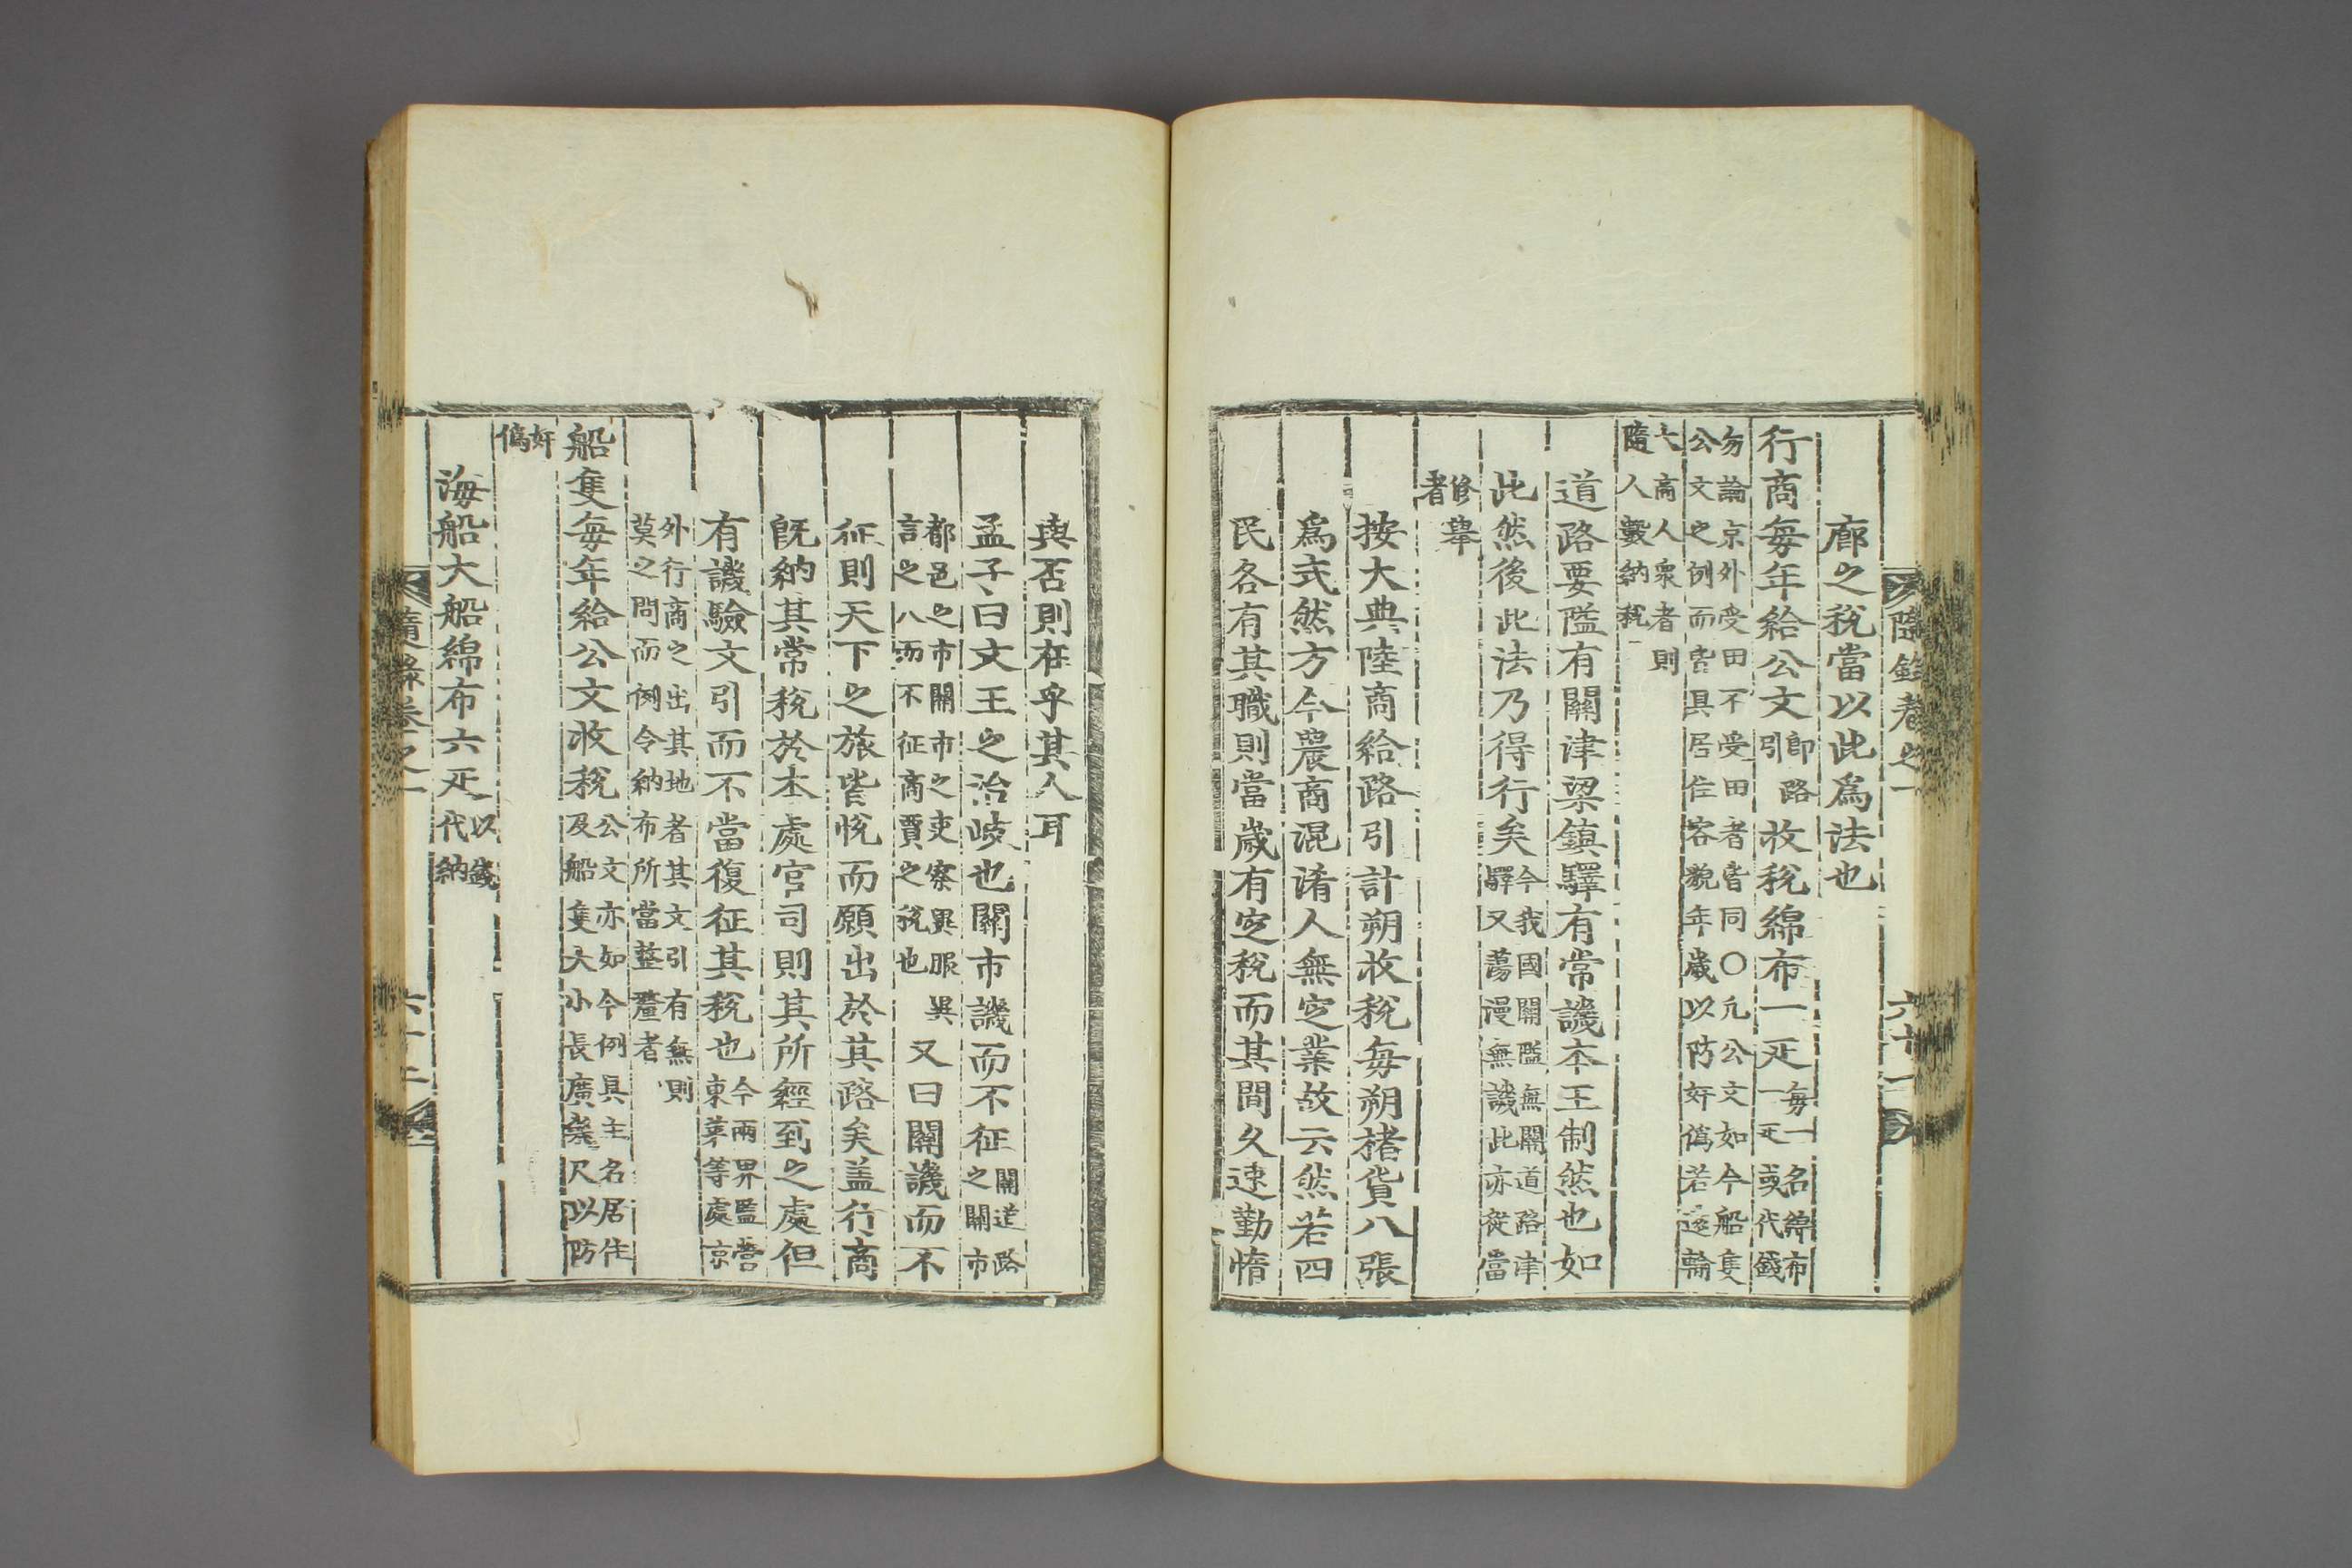 隨錄卷之一 六十一
廊之稅當以此爲法也
行商每年給公文引卽路收稅綿布一疋每一名綿布一疋或代錢
勿論京外受田不受田者皆同○凡公文如今船隻
公文之例而皆具居住容貌年歲以防奸僞若逐輪
大商人衆者則
隨人數納稅
道路要隘有關津梁鎮驛有常譏本王制然也如
此然後此法乃得行矣今我國關隘無關道路津驛又蕩漫無譏此亦從當
修擧者
按大典陸商給路引計朔收稅每朔楮貨八張
爲式然方今農商混淆人無定業故云然若四
民各有其職則當歲有定稅而其間久速勤惰
與否則在乎其人耳
孟子曰文王之治岐也關市譏而不征關道路之關市
都邑之市關市之吏察異服異
言之人而不征商賈之稅也又曰關譏而不
征則天下之旅皆悅而願出於其路矣盖行商
旣納其常稅於本處官司則其所經到之處但
有譏驗文引而不當復征其稅也今兩界監營東萊等處京
外行商之出其地者其文引有無則
莫之問而例令納布所當整釐者
船隻每年給公文收稅公文亦如今例具主名居住及船隻大小長廣幾尺以防
奸僞
海船大船綿布六疋以錢代納
隨錄卷之一 六十二